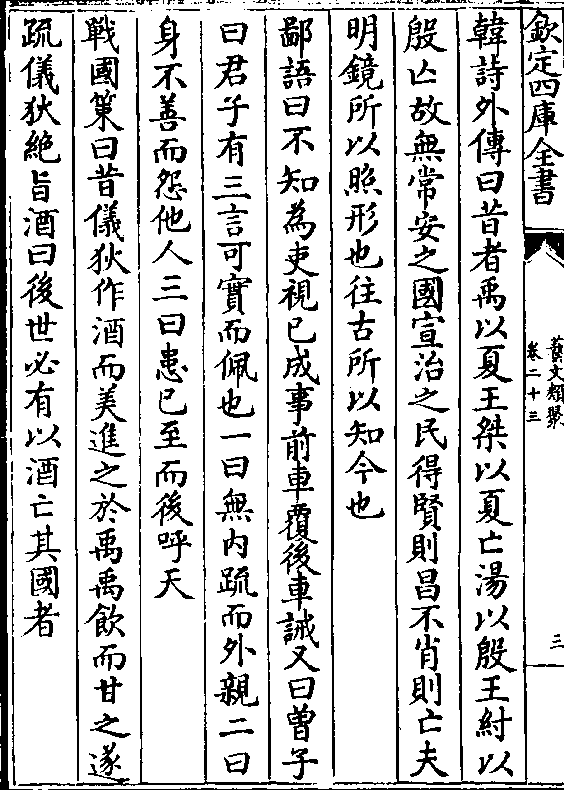 欽定四庫全書
藝文類聚
卷二十三
三
韓詩外傳曰昔者禹以夏王桀以夏亡湯以殷王紂以
殷亡故無常安之國宣治之民得賢則昌不肖則亡夫
明鏡所以照形也往古所以知今也
鄙語曰不知為吏視已成事前車覆後車誡又曰曾子
曰君子有三言可實而佩也一曰無内疏而外親二曰
身不善而怨他人三曰患已至而後呼天
戰國策曰昔儀狄作酒而美進之於禹禹飲而甘之遂
疏儀狄絶旨酒曰後世必有以酒亡其國者